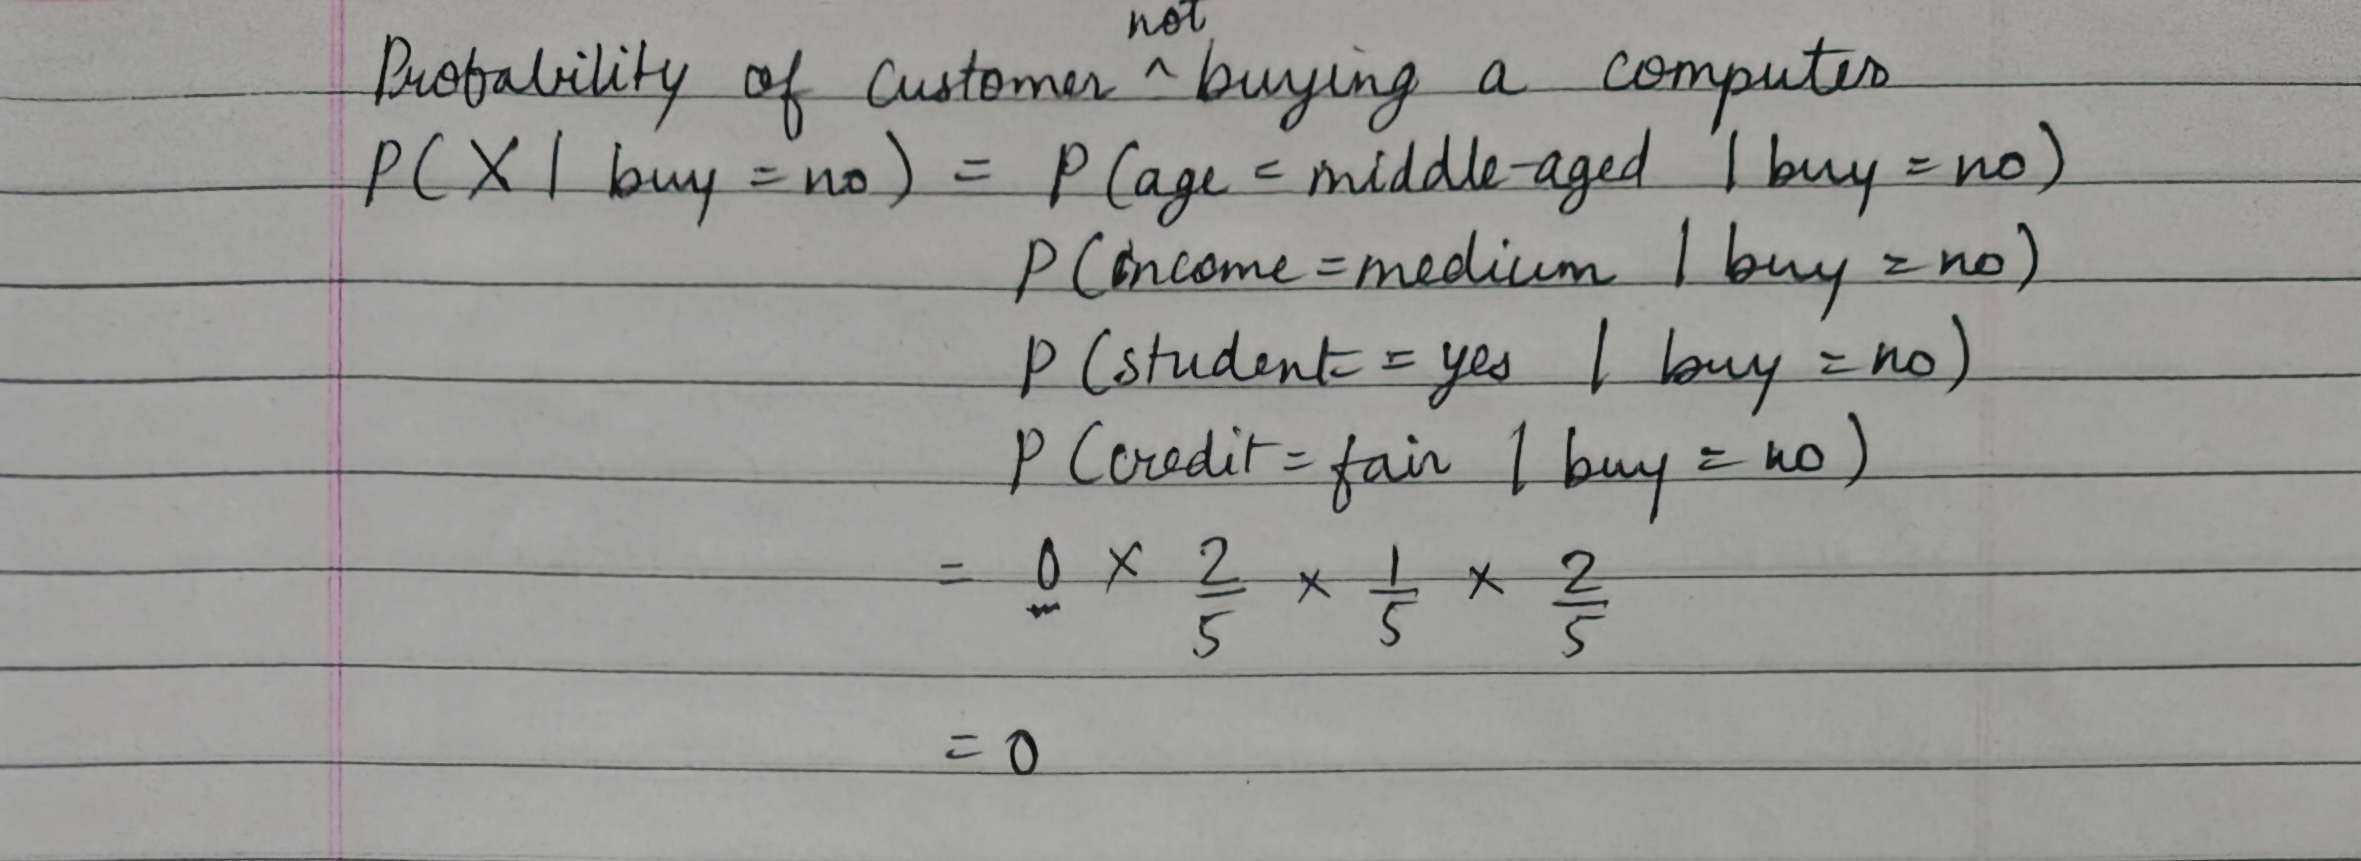 Probability of customer ^not buying a computer
P(X | buy = no) = P(age = middle-aged | buy = no)
P(income = medium | buy = no)
P(student = = yes | buy = no)
P(credit = fair | buy = no)
= 0 × 2/5 × 1/5 × 2/5
= 0